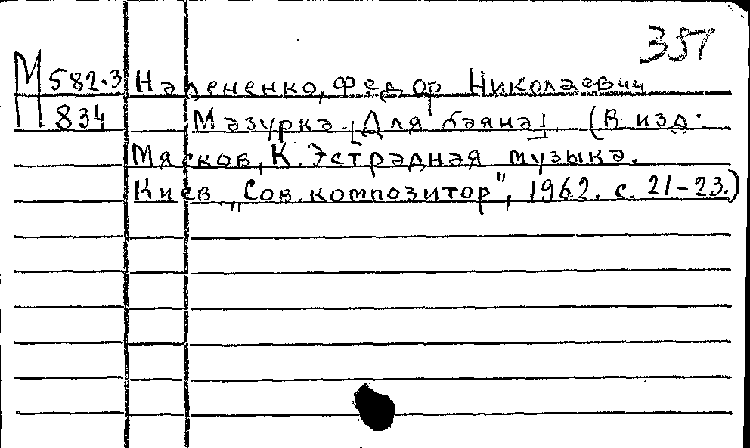 351
М 582.3 Налепенко, Федор Николаевич
834 Мазурка. [Для баяна] (В изд.
Мясков, К. Эстрадная музыка.
Киев, „Сов. композитор", 1962. с. 21-23.)